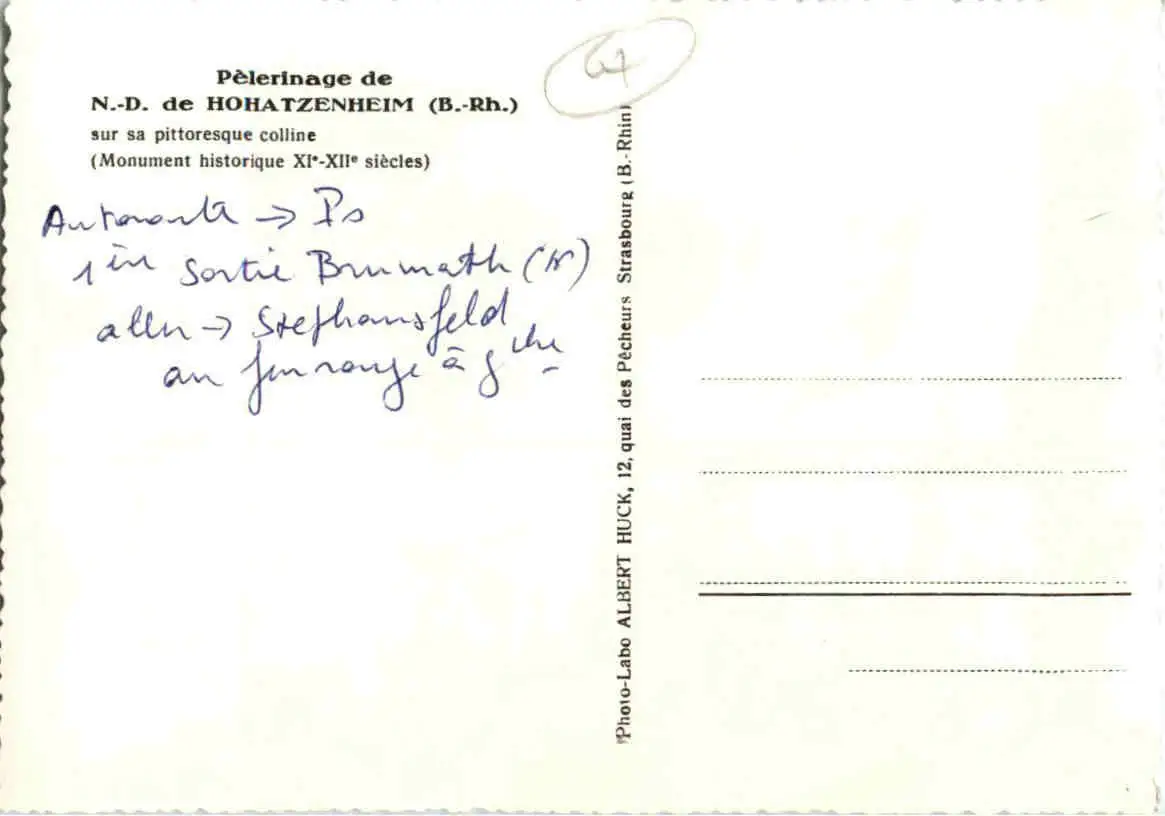 Pèlerinage de
N.-D. de HOHATZENHEIM (B.-Rh.)
sur sa pittoresque colline
(Monument historique XIᵉ-XIIᵉ siècles)
Autoroute → Ps
1ère sortie Brumath (N)
aller → Stephansfeld
au feu rouge à gche
67
Photo-Labo ALBERT HUCK, 12, quai des Pêcheurs Strasbourg (B.-Rhin)